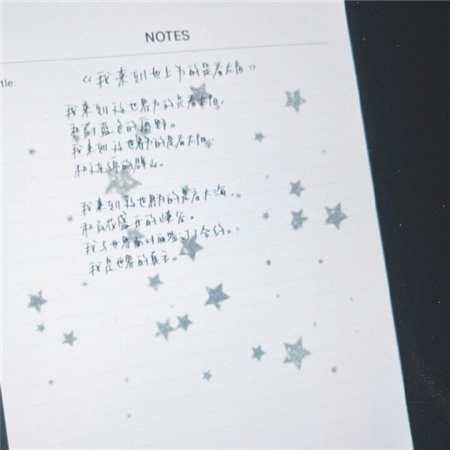 NOTES
tle:
《我来到世上为的是看太阳》
我来到这世界为的是看太阳,
蔚蓝色的原野。
我来到这世界为的是看太阳,
和连绵的群山。
我来到这世界为的是看大海,
和百花盛开的峡谷。
我与世界面对面签订了合约。
我是世界的真主。